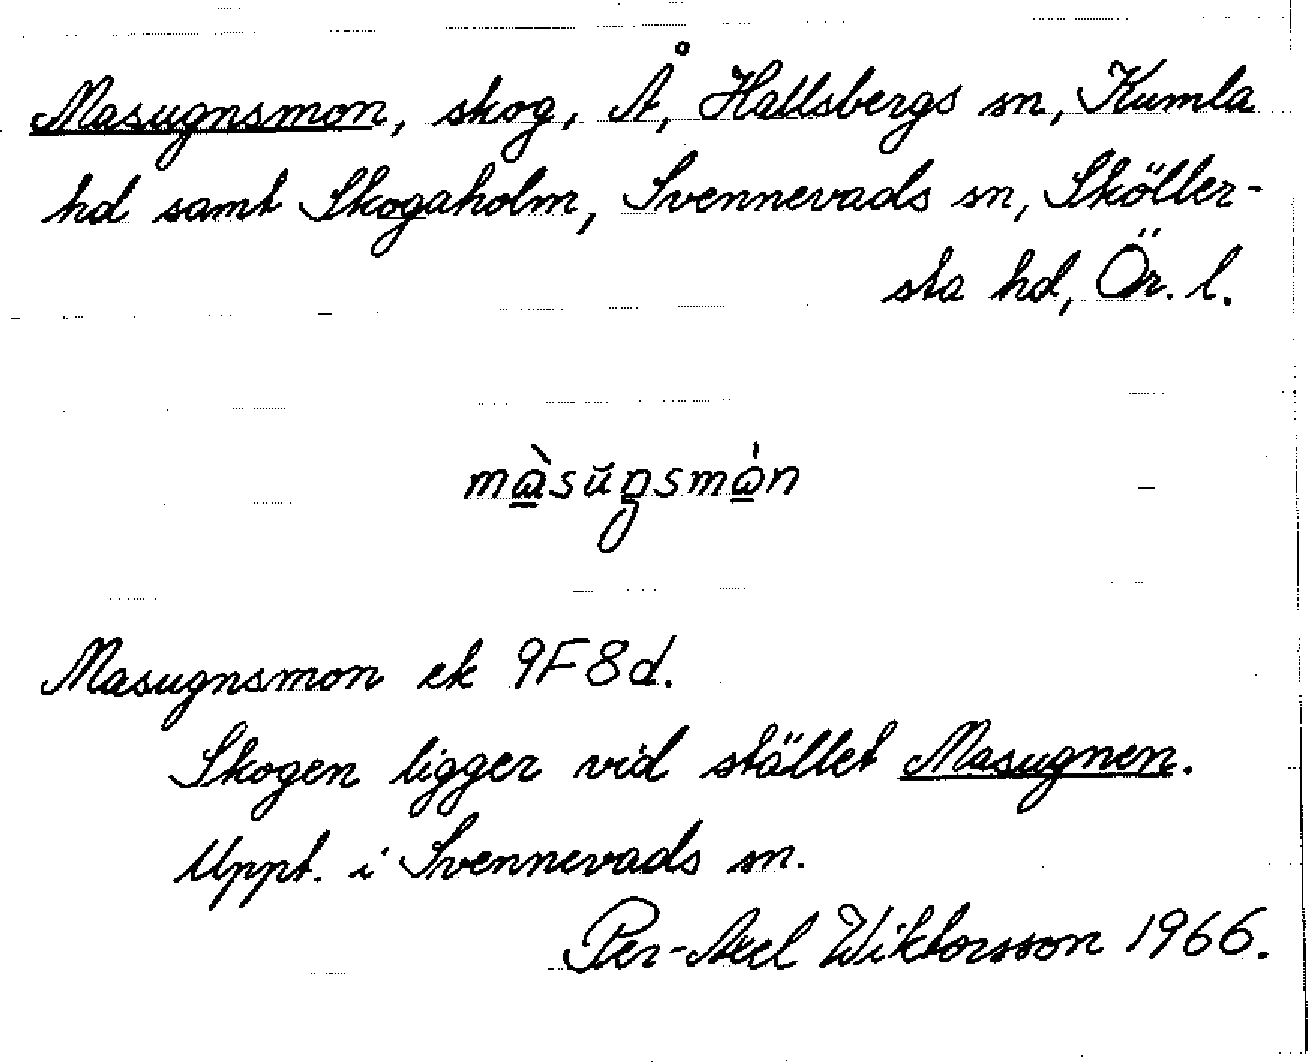 Masugnsmon, skog, Å, Hallsbergs sn, Kumla
hd samt Skogaholm, Svennevads sn, Sköller-
sta hd, Ör. l.
màsŭŋsmòn
Masugnsmon ek 9F 8d.
Skogen ligger vid stället Masugnen.
Uppt. i Svennevads sn.
Per-Axel Wiktorsson 1966.